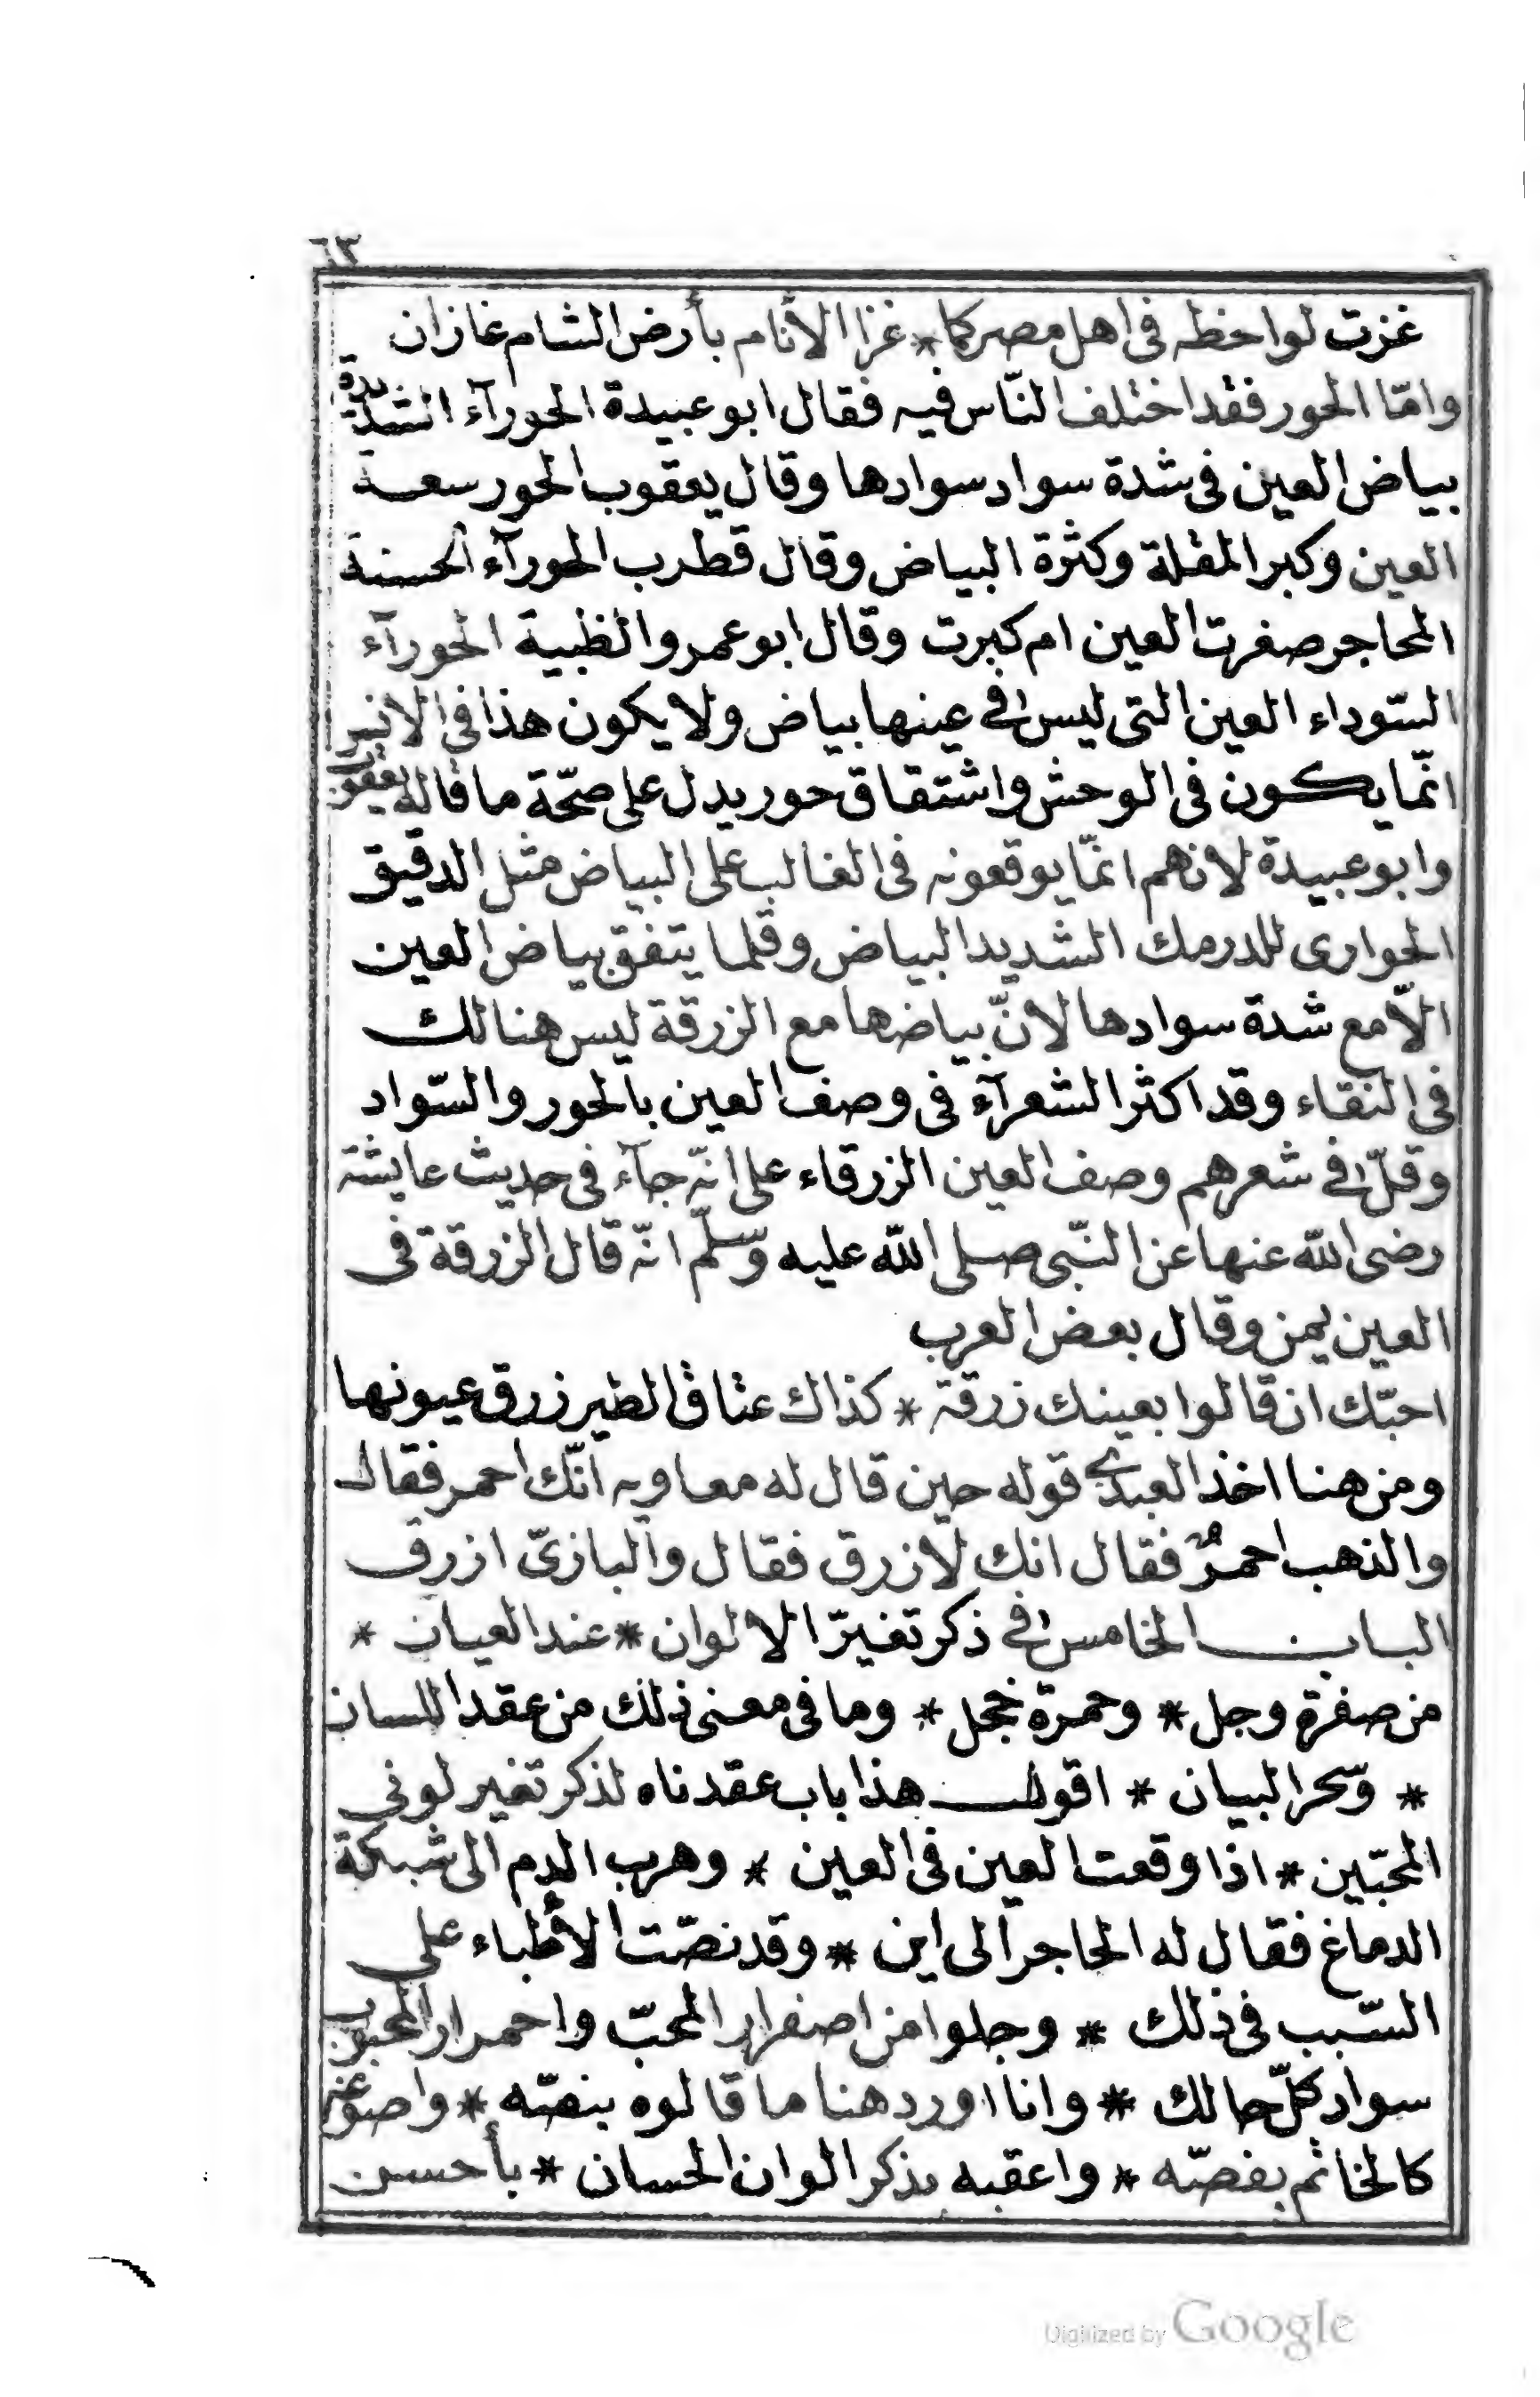 ٦٣
غزت لواحظه فى اهل مصر كما * غزا الأنام بأرض الشام غازان
وامّا الحور فقد اختلف النّاس فيه فقال ابو عبيدة الحورآء الشديدة
بياض العين فى شدة سواد سوادها وقال يعقوب الحور سعة
العين وكبر المقلة وكثرة البياض وقال قطرب الحورآء الحسنة
المحاجر صغرت العين ام كبرت وقال ابو عمرو الظبية الحورآء
السّوداء العين التى ليس فى عينها بياض ولا يكون هذا فى الانس
انّما يكون فى الوحش واشتقاق حور يدل على صحّة ما قاله يعقوب
وابو عبيدة لانهم انّما يوقعونه فى الغالب على البياض مثل الدقيق
الحوارى للدرمك الشديد البياض وقلما يتفق بياض العين
الّا مع شدة سوادها لانّ بياضها مع الزرقة ليس هنالك
فى النقاء وقد اكثر الشعرآء فى وصف العين بالحور والسّواد
وقلّ فى شعرهم وصف العين الزرقاء على انّه جآء فى حديث عايشة
رضى اللّه عنها عن النّبى صلى اللّه عليه وسّلم انّه قال الزرقة فى
العين يمن وقال بعض العرب
احبّك ان قالوا بعينك زرقة * كذاك عتاق الطير زرق عيونها
ومن هنا اخذ العبدى قوله حين قال له معاويه انّك احمر فقال
والذهب احمر فقال انك لازرق فقال والبازىّ ازرق
الباب الخامس فى ذكر تغيرّ الالوان * عند العيان *
من صفرة وجل * وحمرة خجل * وما فى معنى ذلك من عقد اللسان
* وسّحر البيان * اقول هذا باب عقدناه لذكر تغير لونى
المحبّين * اذا وقعت العين فى العين * وهرب الدم الى شبكة
الدماغ فقال له الحاجر الى اين * وقد نصّت الأطباء على
السّبب فى ذلك * وجلوا من اصفرار المحبّ واحمرار المحبوب
سواد كلّ حالك * وانا اورد هنا ما قالوه بنصّه * واصوغه
كالخاتم بفصّه * واعقبه بذكر الوان الحسان * بأحسن
Digitized by Google